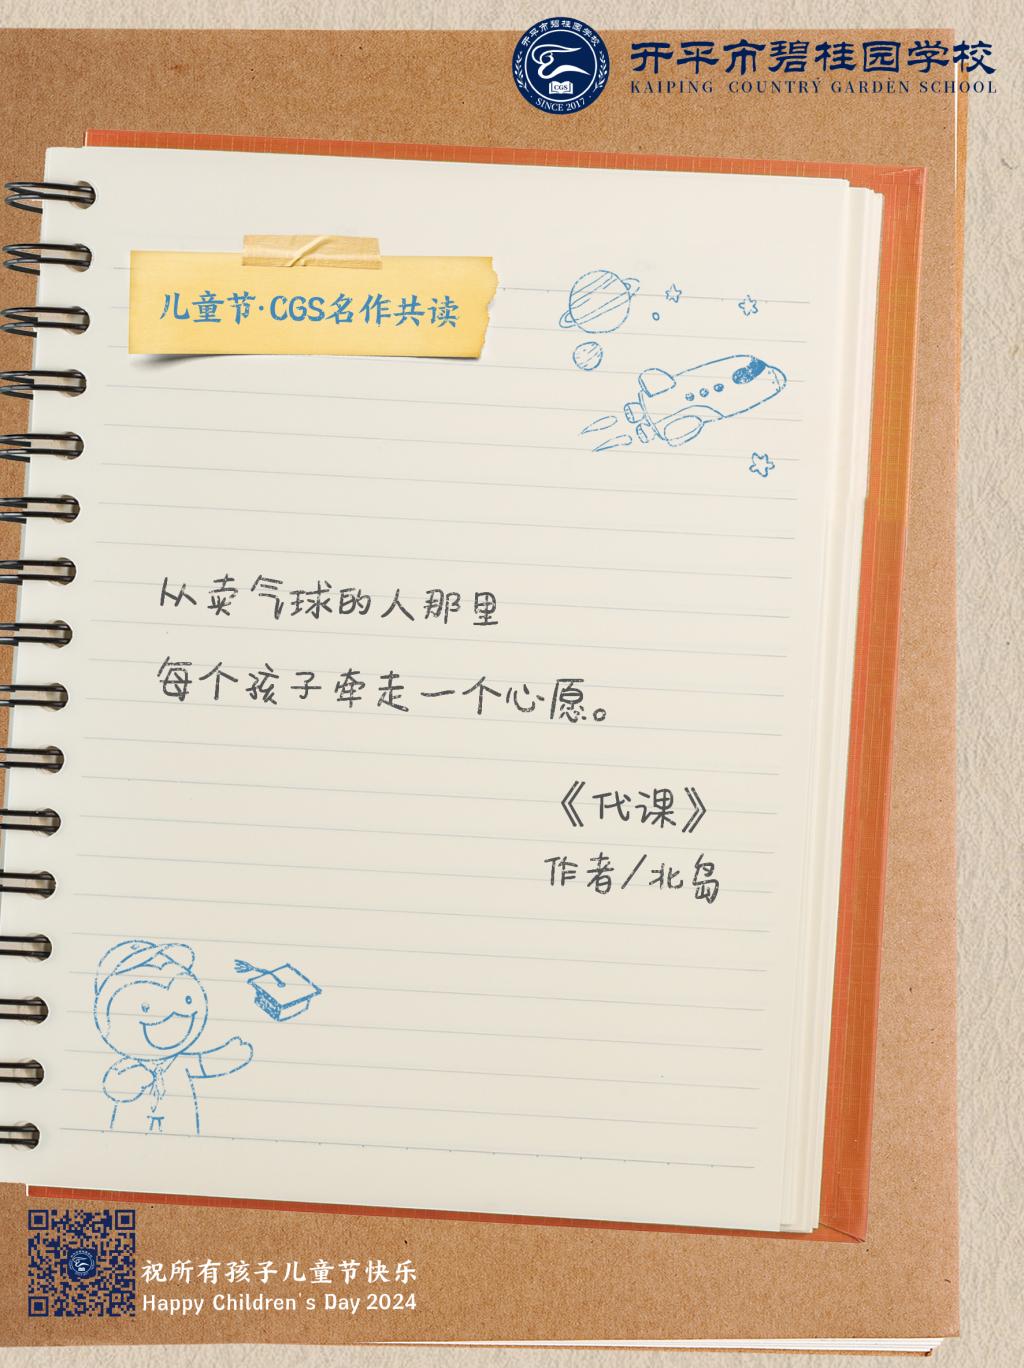 开平市碧桂园学校
KAIPING COUNTRY GARDEN SCHOOL
开平市碧桂园学校
CGS
SINCE 2017
儿童节·CGS名作共读
从卖气球的人那里
每个孩子牵走一个心愿。
《代课》
作者/北岛
祝所有孩子儿童节快乐
Happy Children's Day 2024